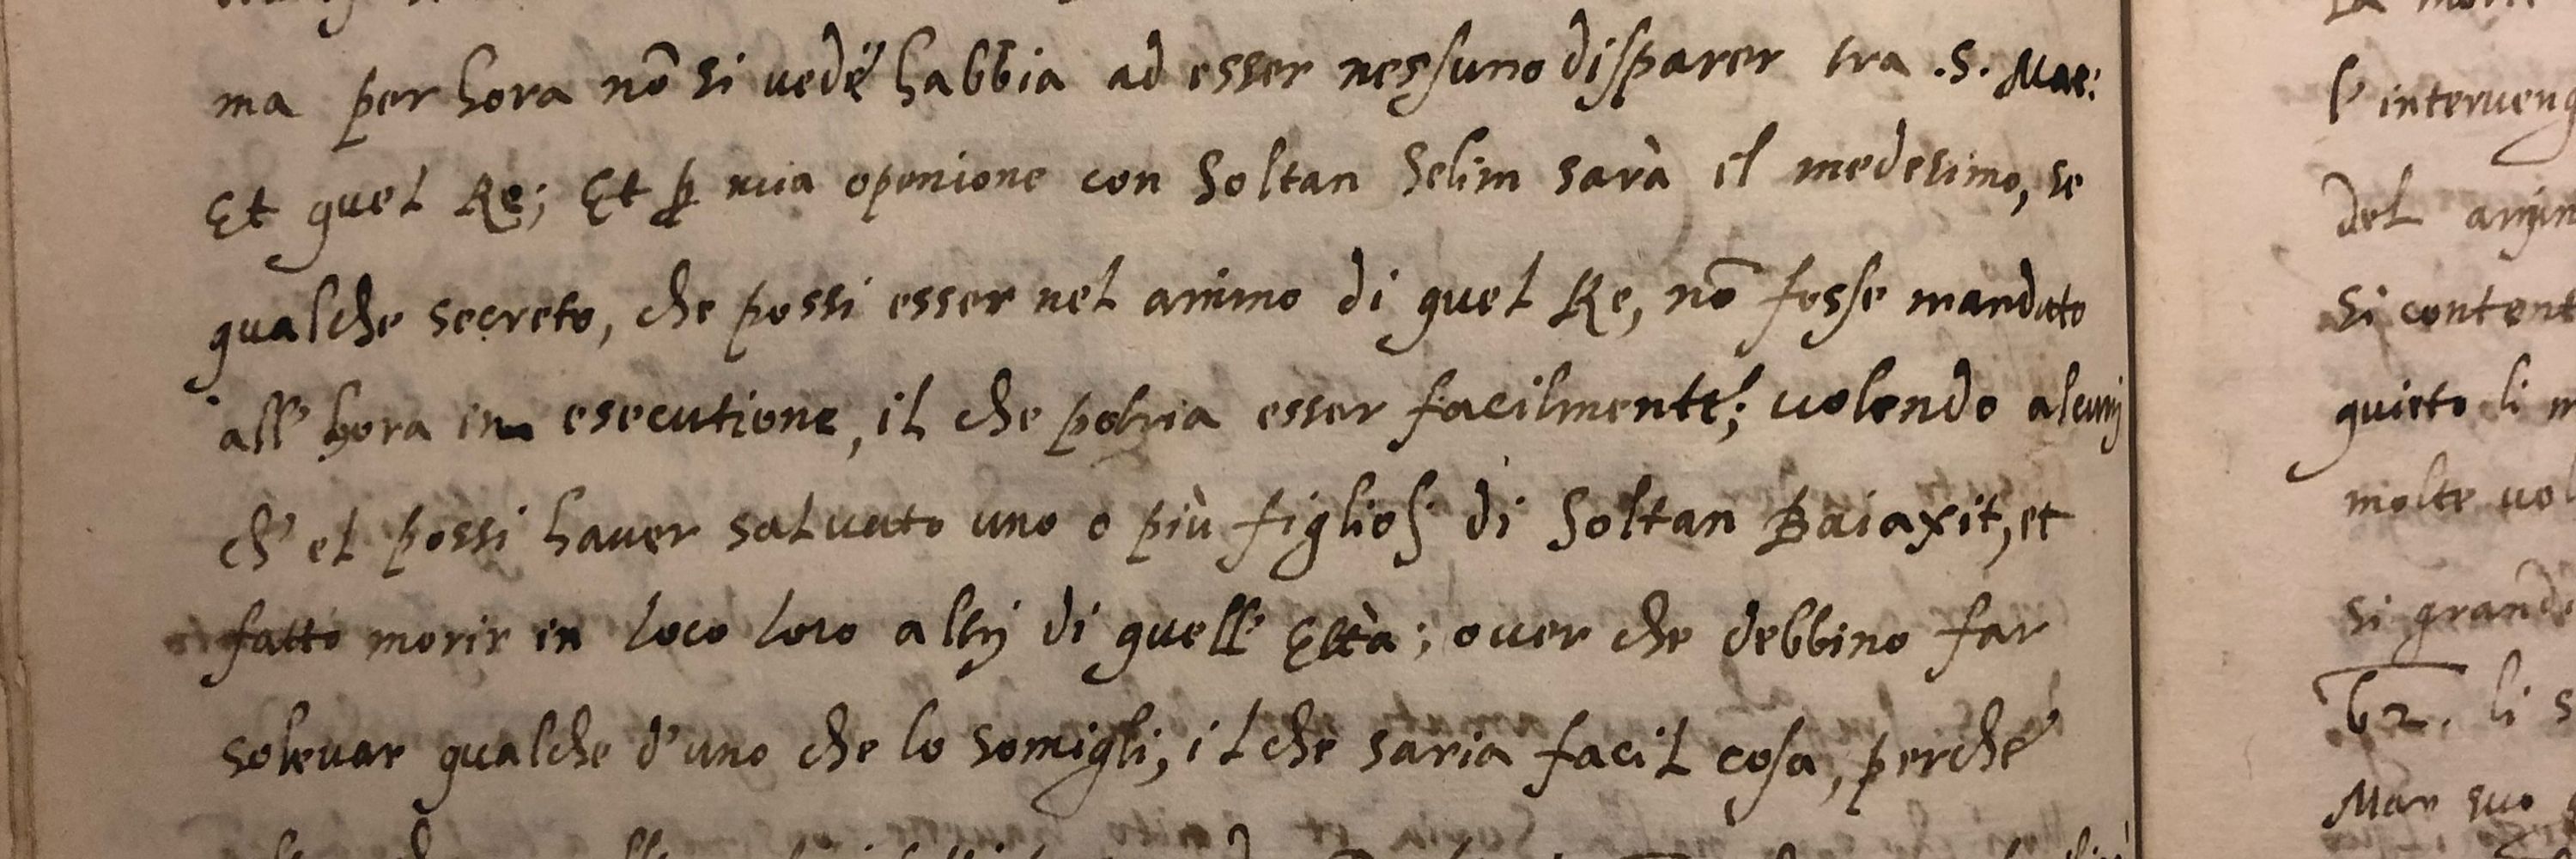 ma per hora nō si vede habbia ad esser nessuno disparer tra .S. Mae:
Et quel Re; Et ꝑ mia openione con Soltan Selim sarà il medesimo, se
qualche secreto, che possi esser nel animo di quel Re, nō fosse mandato
all'hora in esecutione, il che potria esser facilmente; volendo alcunj
ch'el possi haver salvato uno o più figlioli di Soltan Baiaxit, et
fatto morir in loco loro altrj di quell' Età; over che debbino far
solevar qualche d'uno che lo somigli, il che saria facil cosa, perche
l'interveng
del anim
si content
quieto li m
molte vol
si grand
62. li s
Mar suo